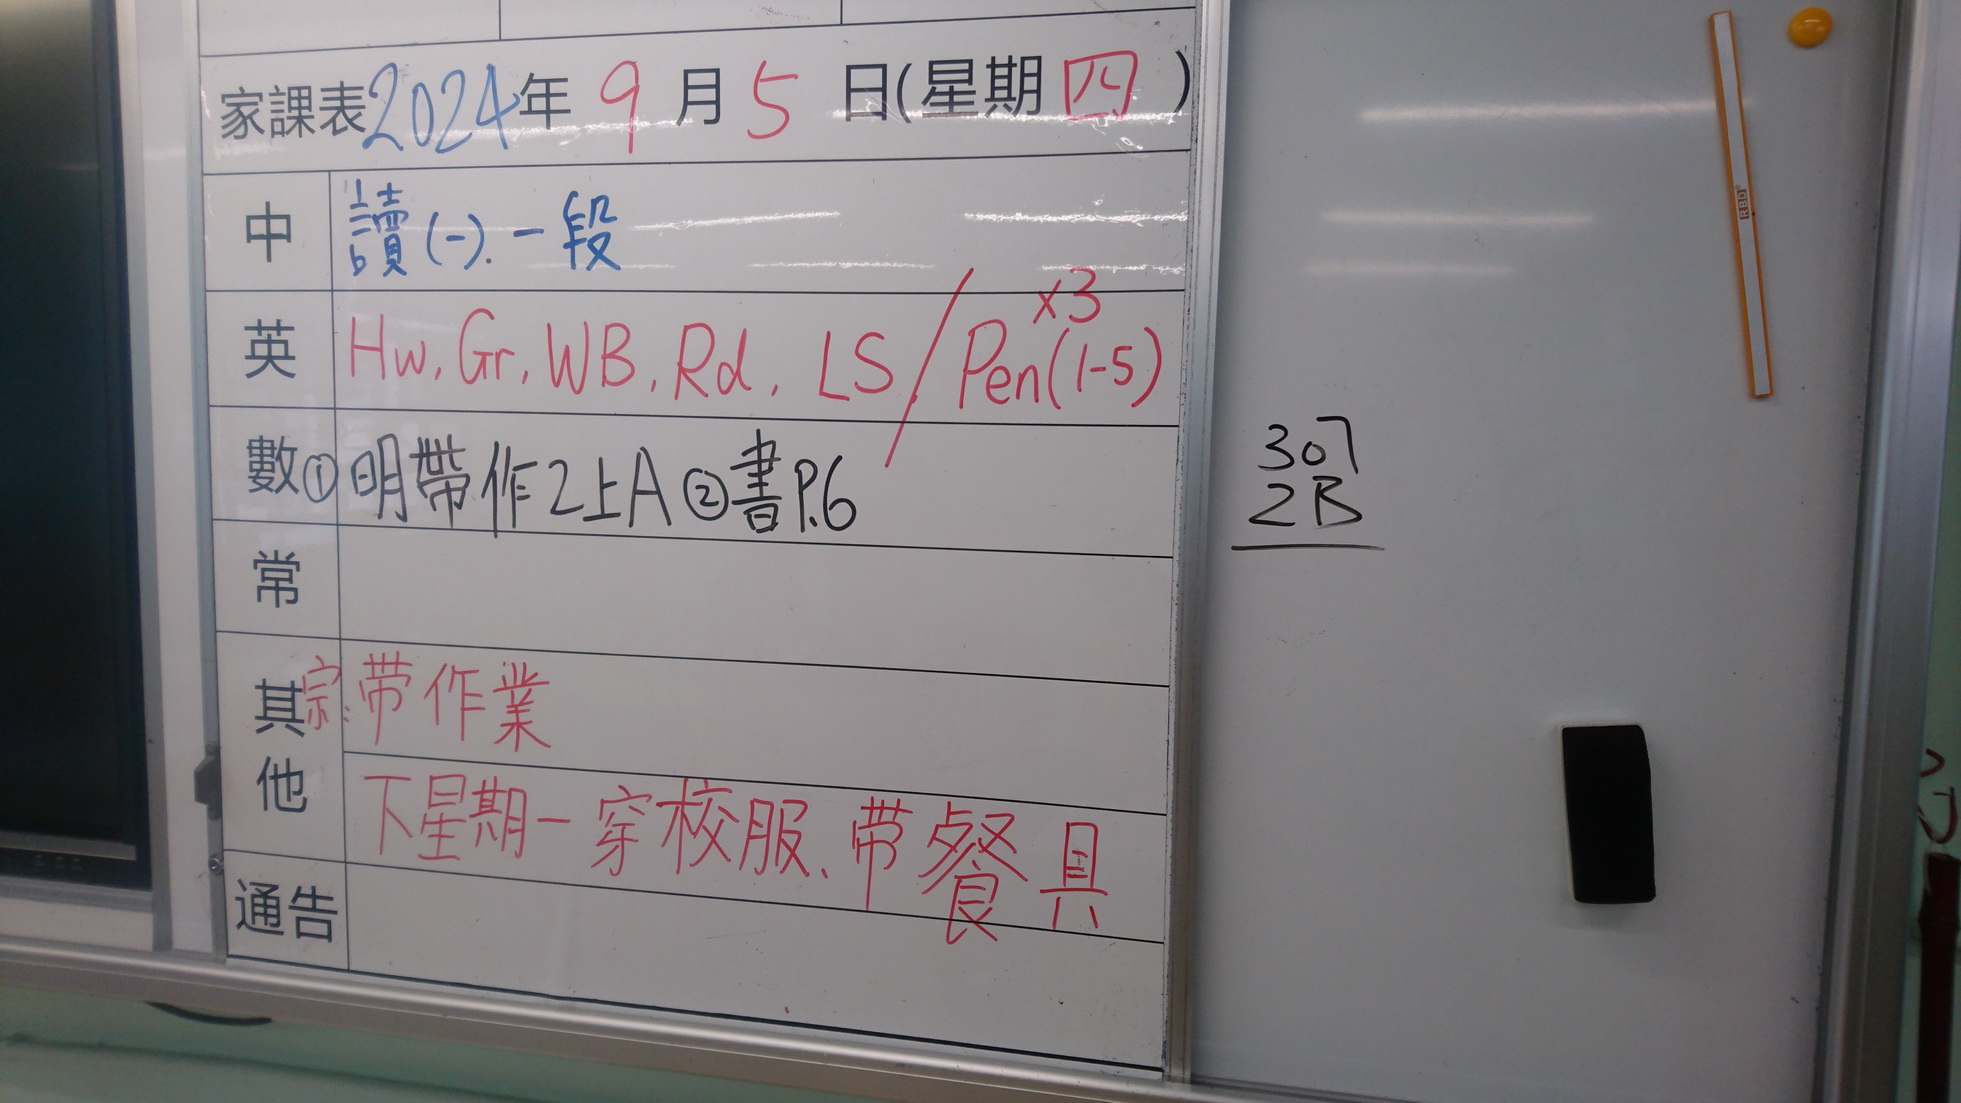 家課表2024年 9 月 5 日(星期 四 )
中 讀(一).一段
英 Hw, Gr, WB, Rd, LS / Pen(1-5) x3
數 ①明帶作2上A ②書P.6
常
其他 宗:带作業
下星期一穿校服、带餐具
通告
307
2B
RBD